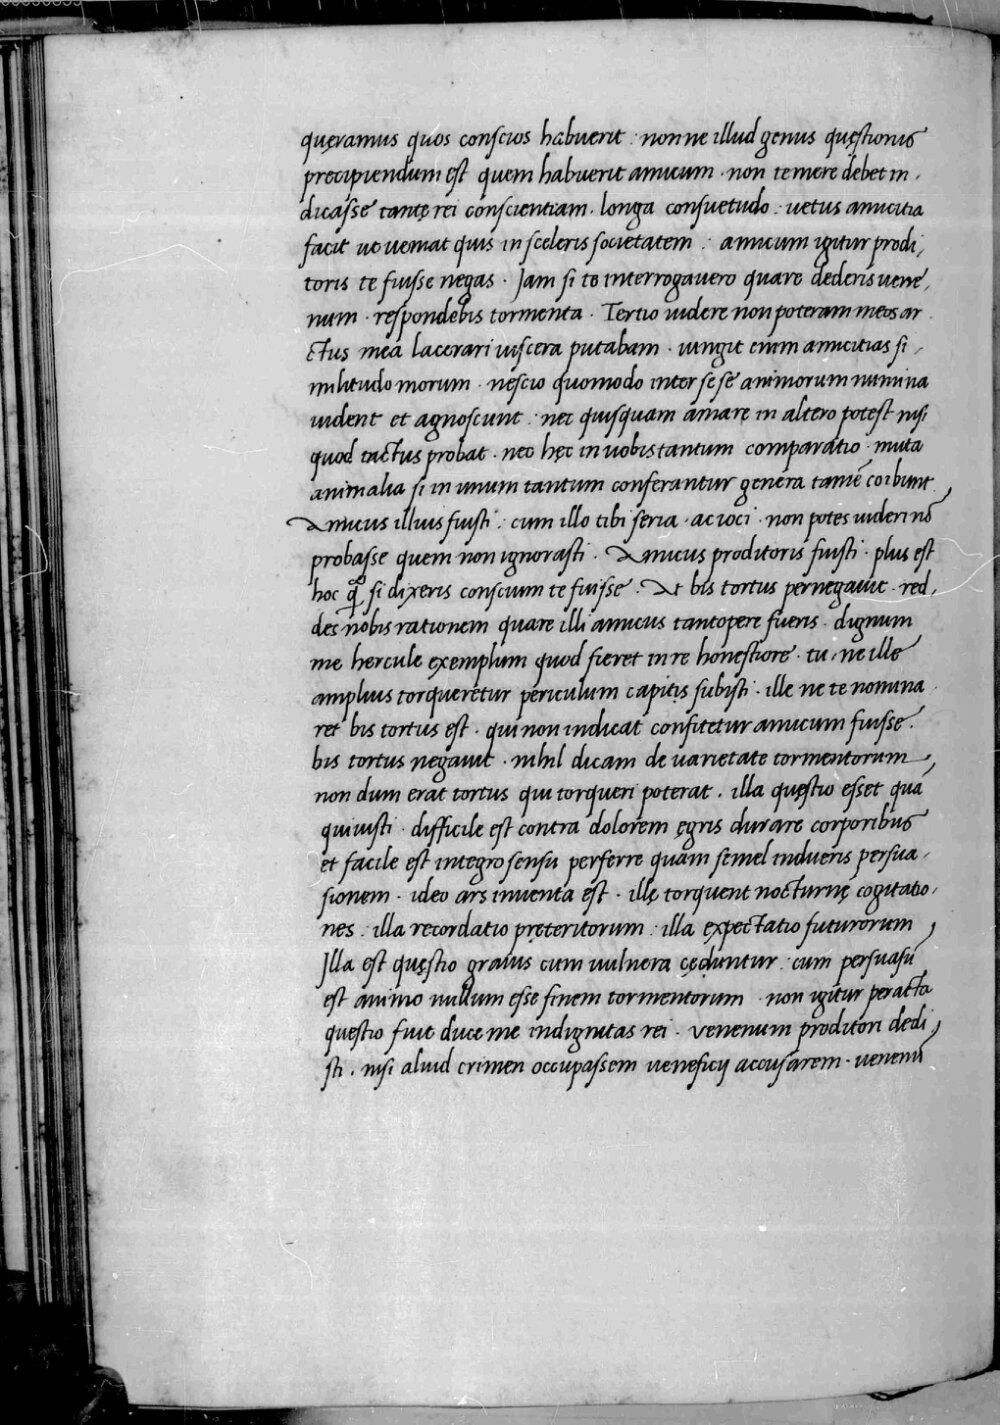 quęramus quos conscios habuerit . nonne illud genus quęstionis
precipiendum est quem habuerit amicum . non temere debet in,
dicasse tantę rei conscientiam . longa consuetudo . uetus amicitia
facit ut ueniat quis in sceleris societatem . amicum igitur prodi,
toris te fuisse negas . Jam si te interrogavero quare dederis uene,
num . respondebis tormenta . Tertio uidere non poteram meos ar
ctus mea lacerari uiscera putabam . iungit enim amicitias si,
militudo morum . nescio quomodo inter se se animorum numina
uident et agnoscunt . nec quisquam amare in altero potest nisi
quod tactus probat . nec hęc in uobis tantum comparatio . muta
animalia si in unum tantum conferantur genera tamē coibunt
Amicus illius fuisti . cum illo tibi seria . ac ioci . non potes uideri nō
probasse quem non ignorasti . Amicus proditoris fuisti . plus est
hoc q̃ si dixeris conscium te fuisse . At bis tortus pernegauit . red,
des nobis rationem quare illi amicus tantopere fueris . dignum
me hercule exemplum quod fieret in re honestiore . tu, ne ille
amplius torqueretur periculum capitis subisti . ille ne te nomina
ret bis tortus est . qui non indicat confitetur amicum fuisse .
bis tortus negauit . nihil dicam de uarietate tormentorum,
non dum erat tortus qui torqueri poterat . illa quęstio esset qua
qui uisti . difficile est contra dolorem ęgris durare corporibus
et facile est integro sensu perferre quam semel indueris persua,
sionem . ideo ars inuenta est . illę torquent nocturnę cogitatio,
nes . illa recordatio pręteritorum . illa expectatio futurorum,
Jlla est quęstio grauis cum uulnera cęduntur . cum persuasū
est animo nullum esse finem tormentorum . non igitur peracta
questio fuit duce me indignitas rei . venenum proditori dedi,
sti . nisi aliud crimen occupassem ueneficij accusarem . uenenū